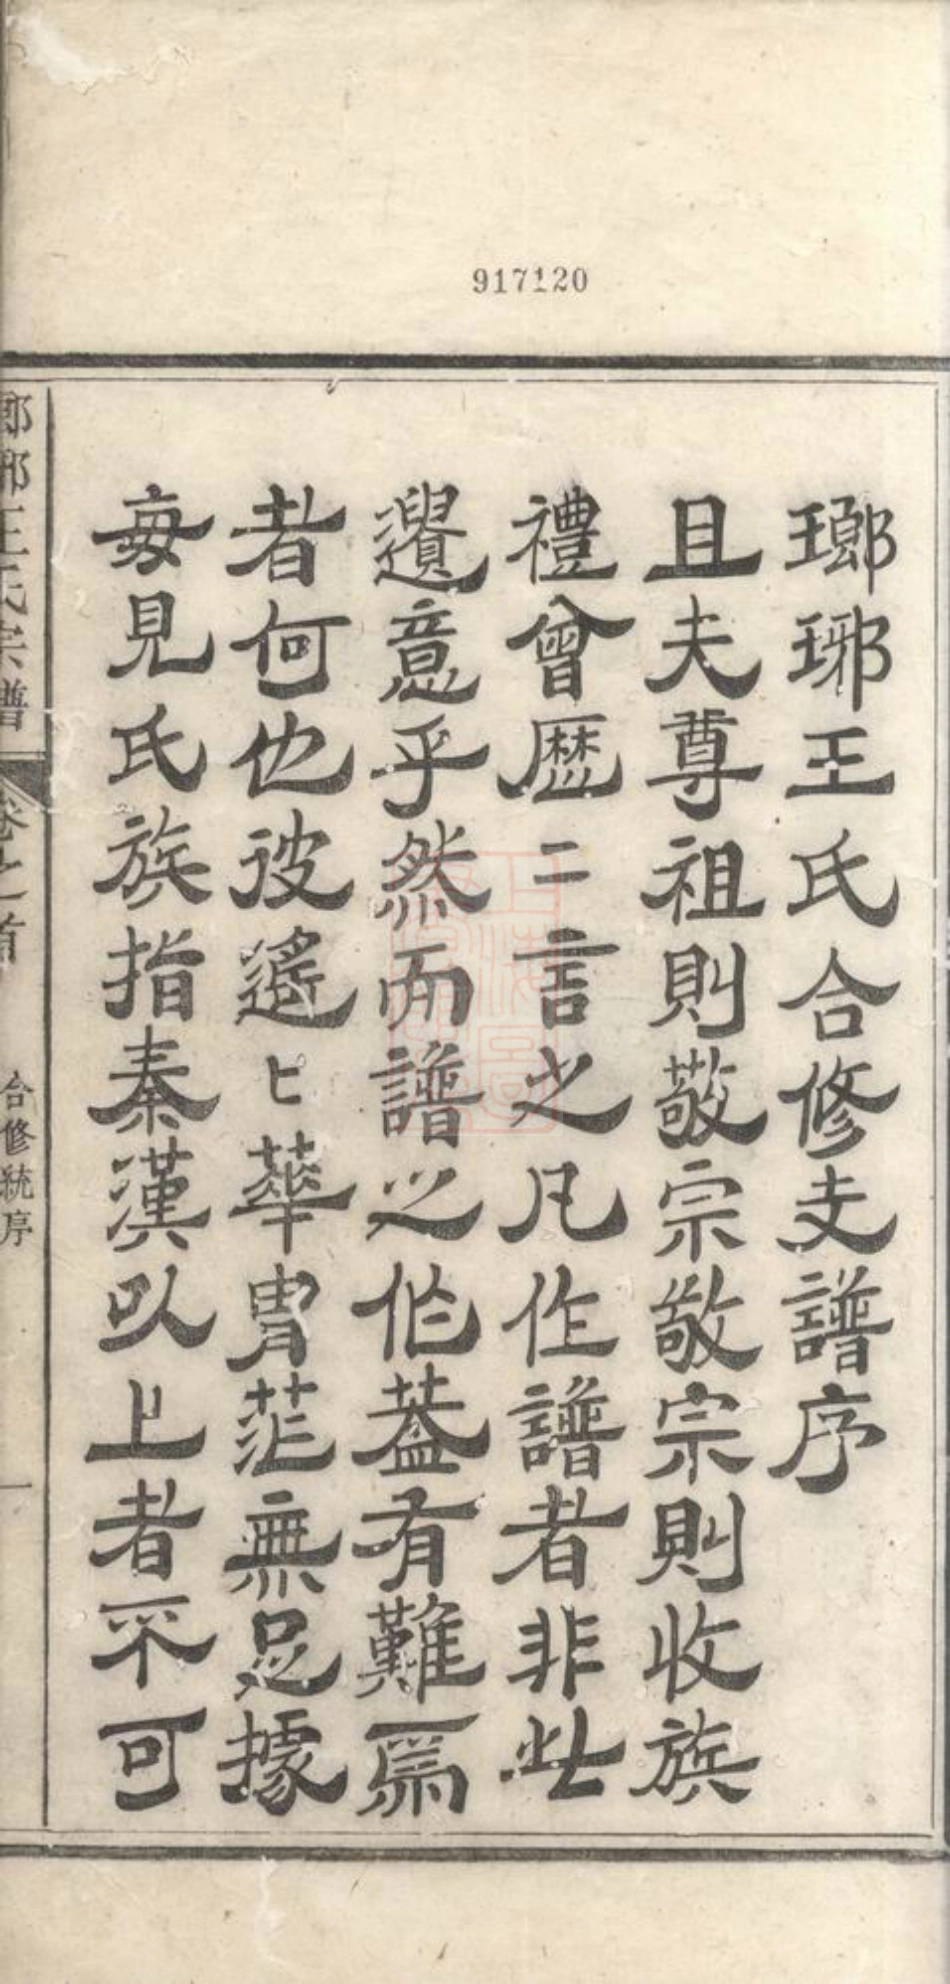 917120
瑯琊王氏合修支譜序
且夫尊祖則敬宗敬宗則收族
禮曾歷二言之凡作譜者非此
遺意乎然而譜之作蓋有難焉
者何也彼遙ヒ華胄茫無足據
每見氏族指秦漢以上者不可
瑯琊王氏宗譜
卷之首
合修統序
一